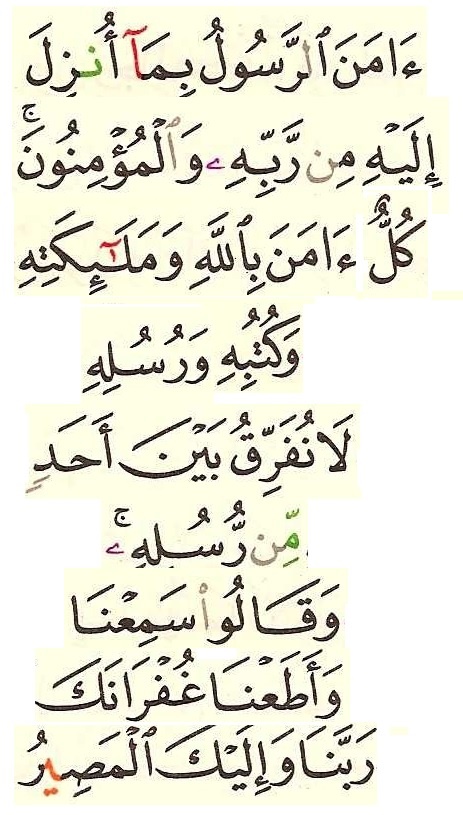 ءَامَنَ ٱلرَّسُولُ بِمَآ أُنزِلَ
إِلَيْهِ مِن رَّبِّهِۦ وَٱلْمُؤْمِنُونَۚ
كُلٌّ ءَامَنَ بِٱللَّهِ وَمَلَـٰٓئِكَتِهِ
وَكُتُبِهِ وَرُسُلِهِ
لَا نُفَرِّقُ بَيْنَ أَحَدٍ
مِّن رُّسُلِهِۦۚ
وَقَالُوا۟ سَمِعْنَا
وَأَطَعْنَا غُفْرَانَكَ
رَبَّنَا وَإِلَيْكَ ٱلْمَصِيرُ